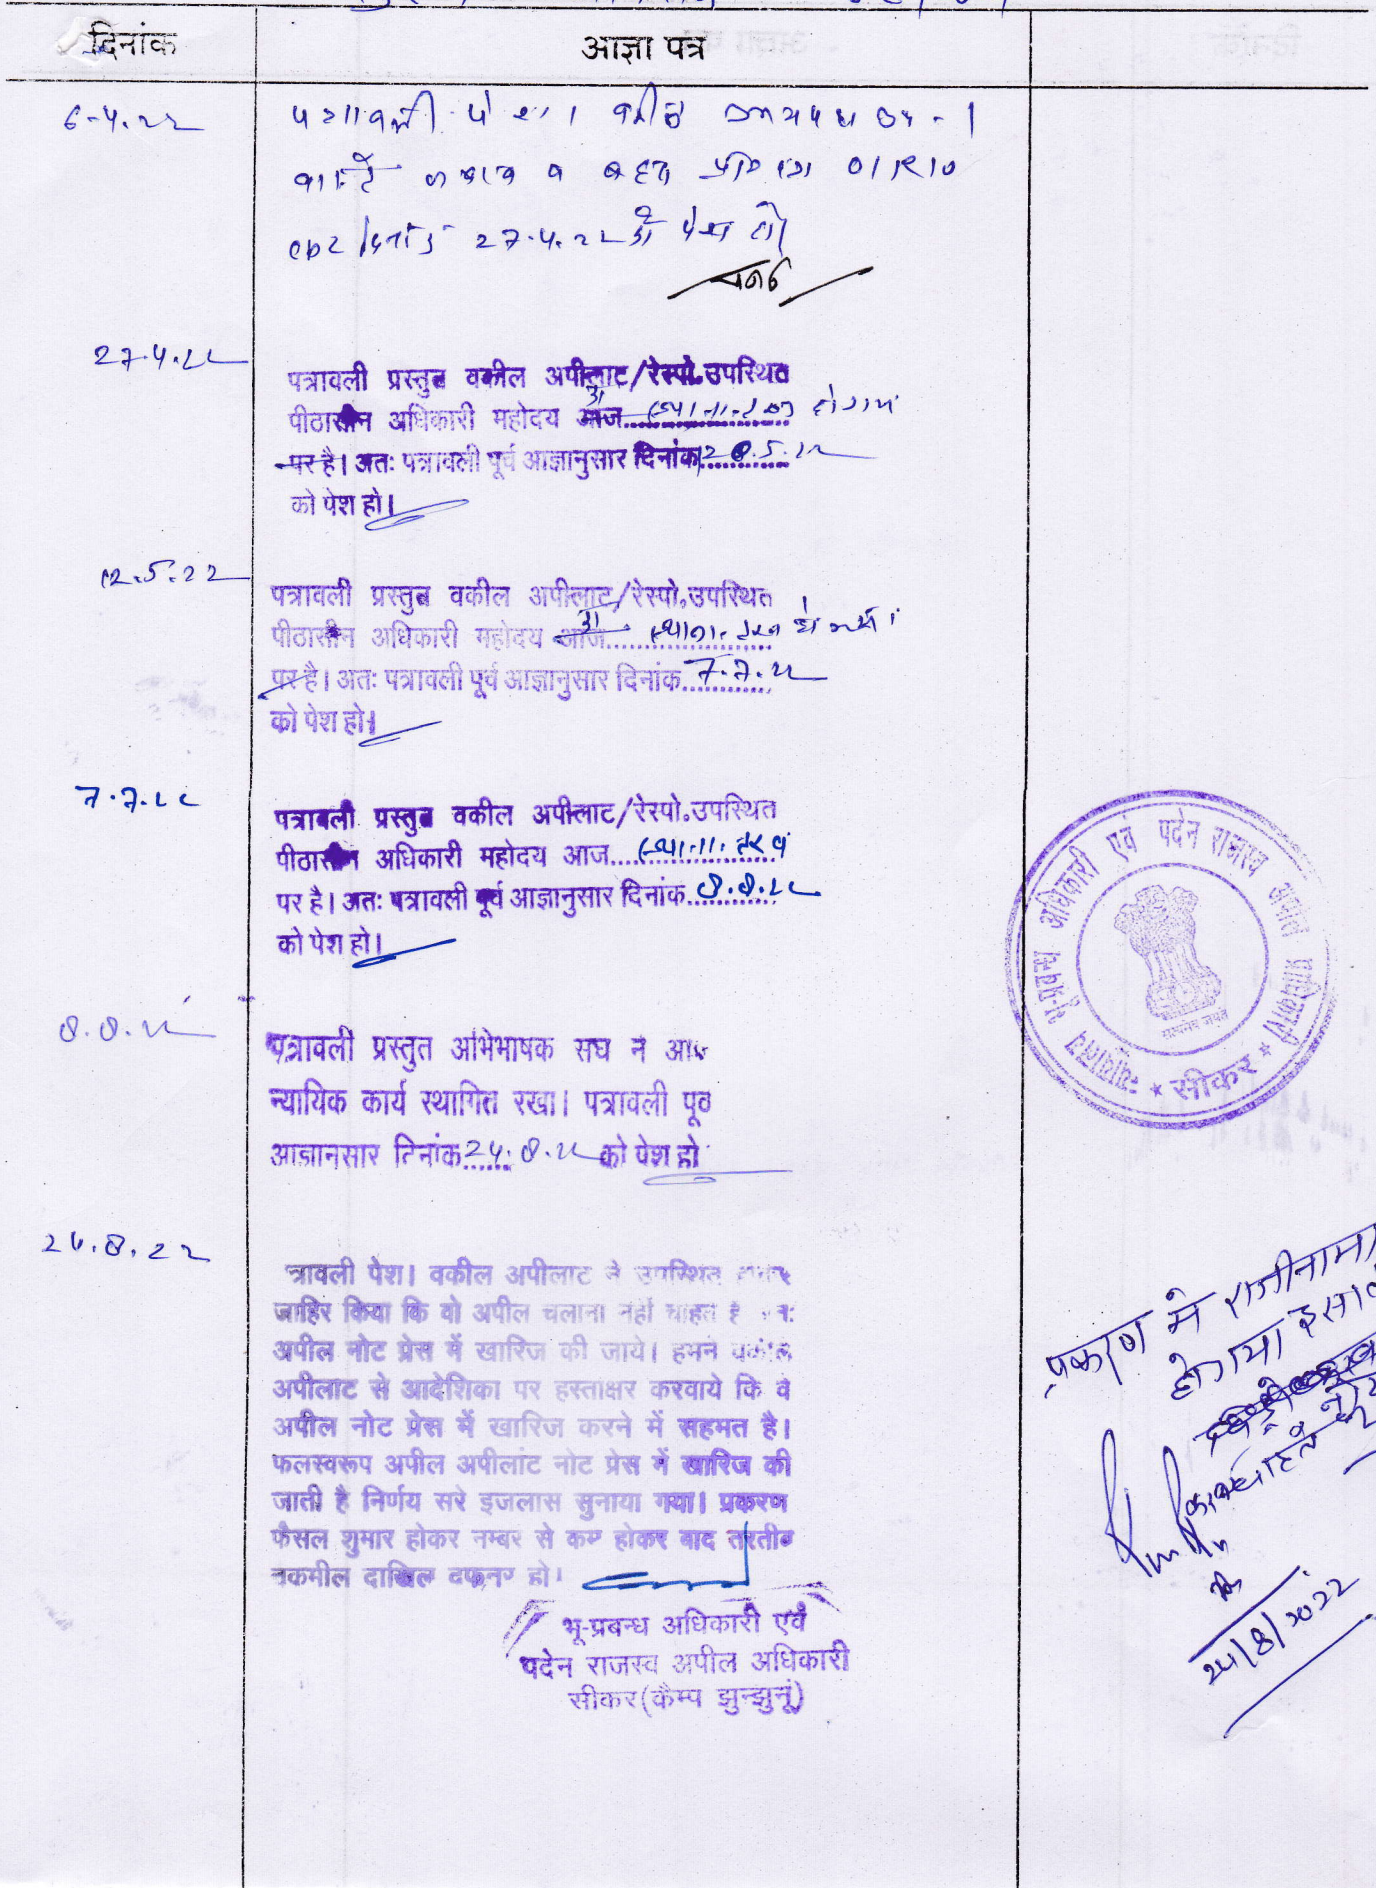 दिनांक
आज्ञा पत्र
6-4-22
पत्रावली पेश। वकील
वास्ते जवाब व बहस
27.4.22 को पेश हो।
27.4.22
पत्रावली प्रस्तुत वकील अपीलाट/रेस्पो.उपस्थित
पीठासीन अधिकारी महोदय आज स्थानान्तरण होगया
पर है। अतः पत्रावली पूर्व आज्ञानुसार दिनांक
को पेश हो।
12.5.22
पत्रावली प्रस्तुत वकील अपीलाट/रेस्पो.उपस्थित
पीठासीन अधिकारी महोदय आज स्थानान्तरण
पर है। अतः पत्रावली पूर्व आज्ञानुसार दिनांक 7.7.22
को पेश हो।
7.7.22
पत्रावली प्रस्तुत वकील अपीलाट/रेस्पो.उपस्थित
पीठासीन अधिकारी महोदय आज स्थानान्तरण
पर है। अतः पत्रावली पूर्व आज्ञानुसार दिनांक 8.8.22
को पेश हो।
8.8.22
पत्रावली प्रस्तुत अभिभाषक संघ ने आज
न्यायिक कार्य स्थागित रखा। पत्रावली पूर्व
आज्ञानुसार दिनांक 24.8.22 को पेश हो
न्यायालय भू-प्रबन्ध अधिकारी एवं पदेन राजस्व अपील प्राधिकारी
★ सीकर ★
सत्यमेव जयते
24.8.22
त्रावली पेश। वकील अपीलाट ने उपस्थित होकर
जाहिर किया कि वो अपील चलाना नहीं चाहते है अतः
अपील नोट प्रेस में खारिज की जाये। हमने वकील
अपीलाट से आदेशिका पर हस्ताक्षर करवाये कि व
अपील नोट प्रेस में खारिज करने में सहमत है।
फलस्वरूप अपील अपीलांट नोट प्रेस में खारिज की
जाती है निर्णय सरे इजलास सुनाया गया। प्रकरण
फैसल शुमार होकर नम्बर से कम होकर बाद तरतीब
तकमील दाखिल दफ्तर हो।
भू-प्रबन्ध अधिकारी एवं
पदेन राजस्व अपील अधिकारी
सीकर(कैम्प झुन्झुनूं)
प्रकरण मे राजीनामा
होगया
24/8/2022